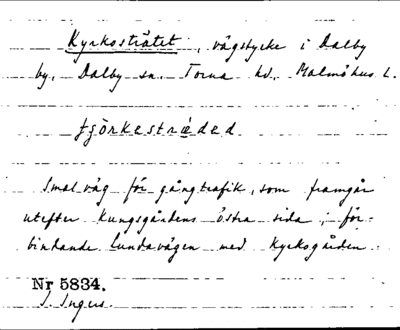 Kyrkosträtet, vägstycke i Dalby
by, Dalby sn. Torna hd., Malmöhus L.
tjörkestræded
Smal väg för gångtrafik, som framgår
utefter Kungsgårdens östra sida, för-
bindande Lundavägen med Kyrkogården.
Nr 5834.
S. Ingers.